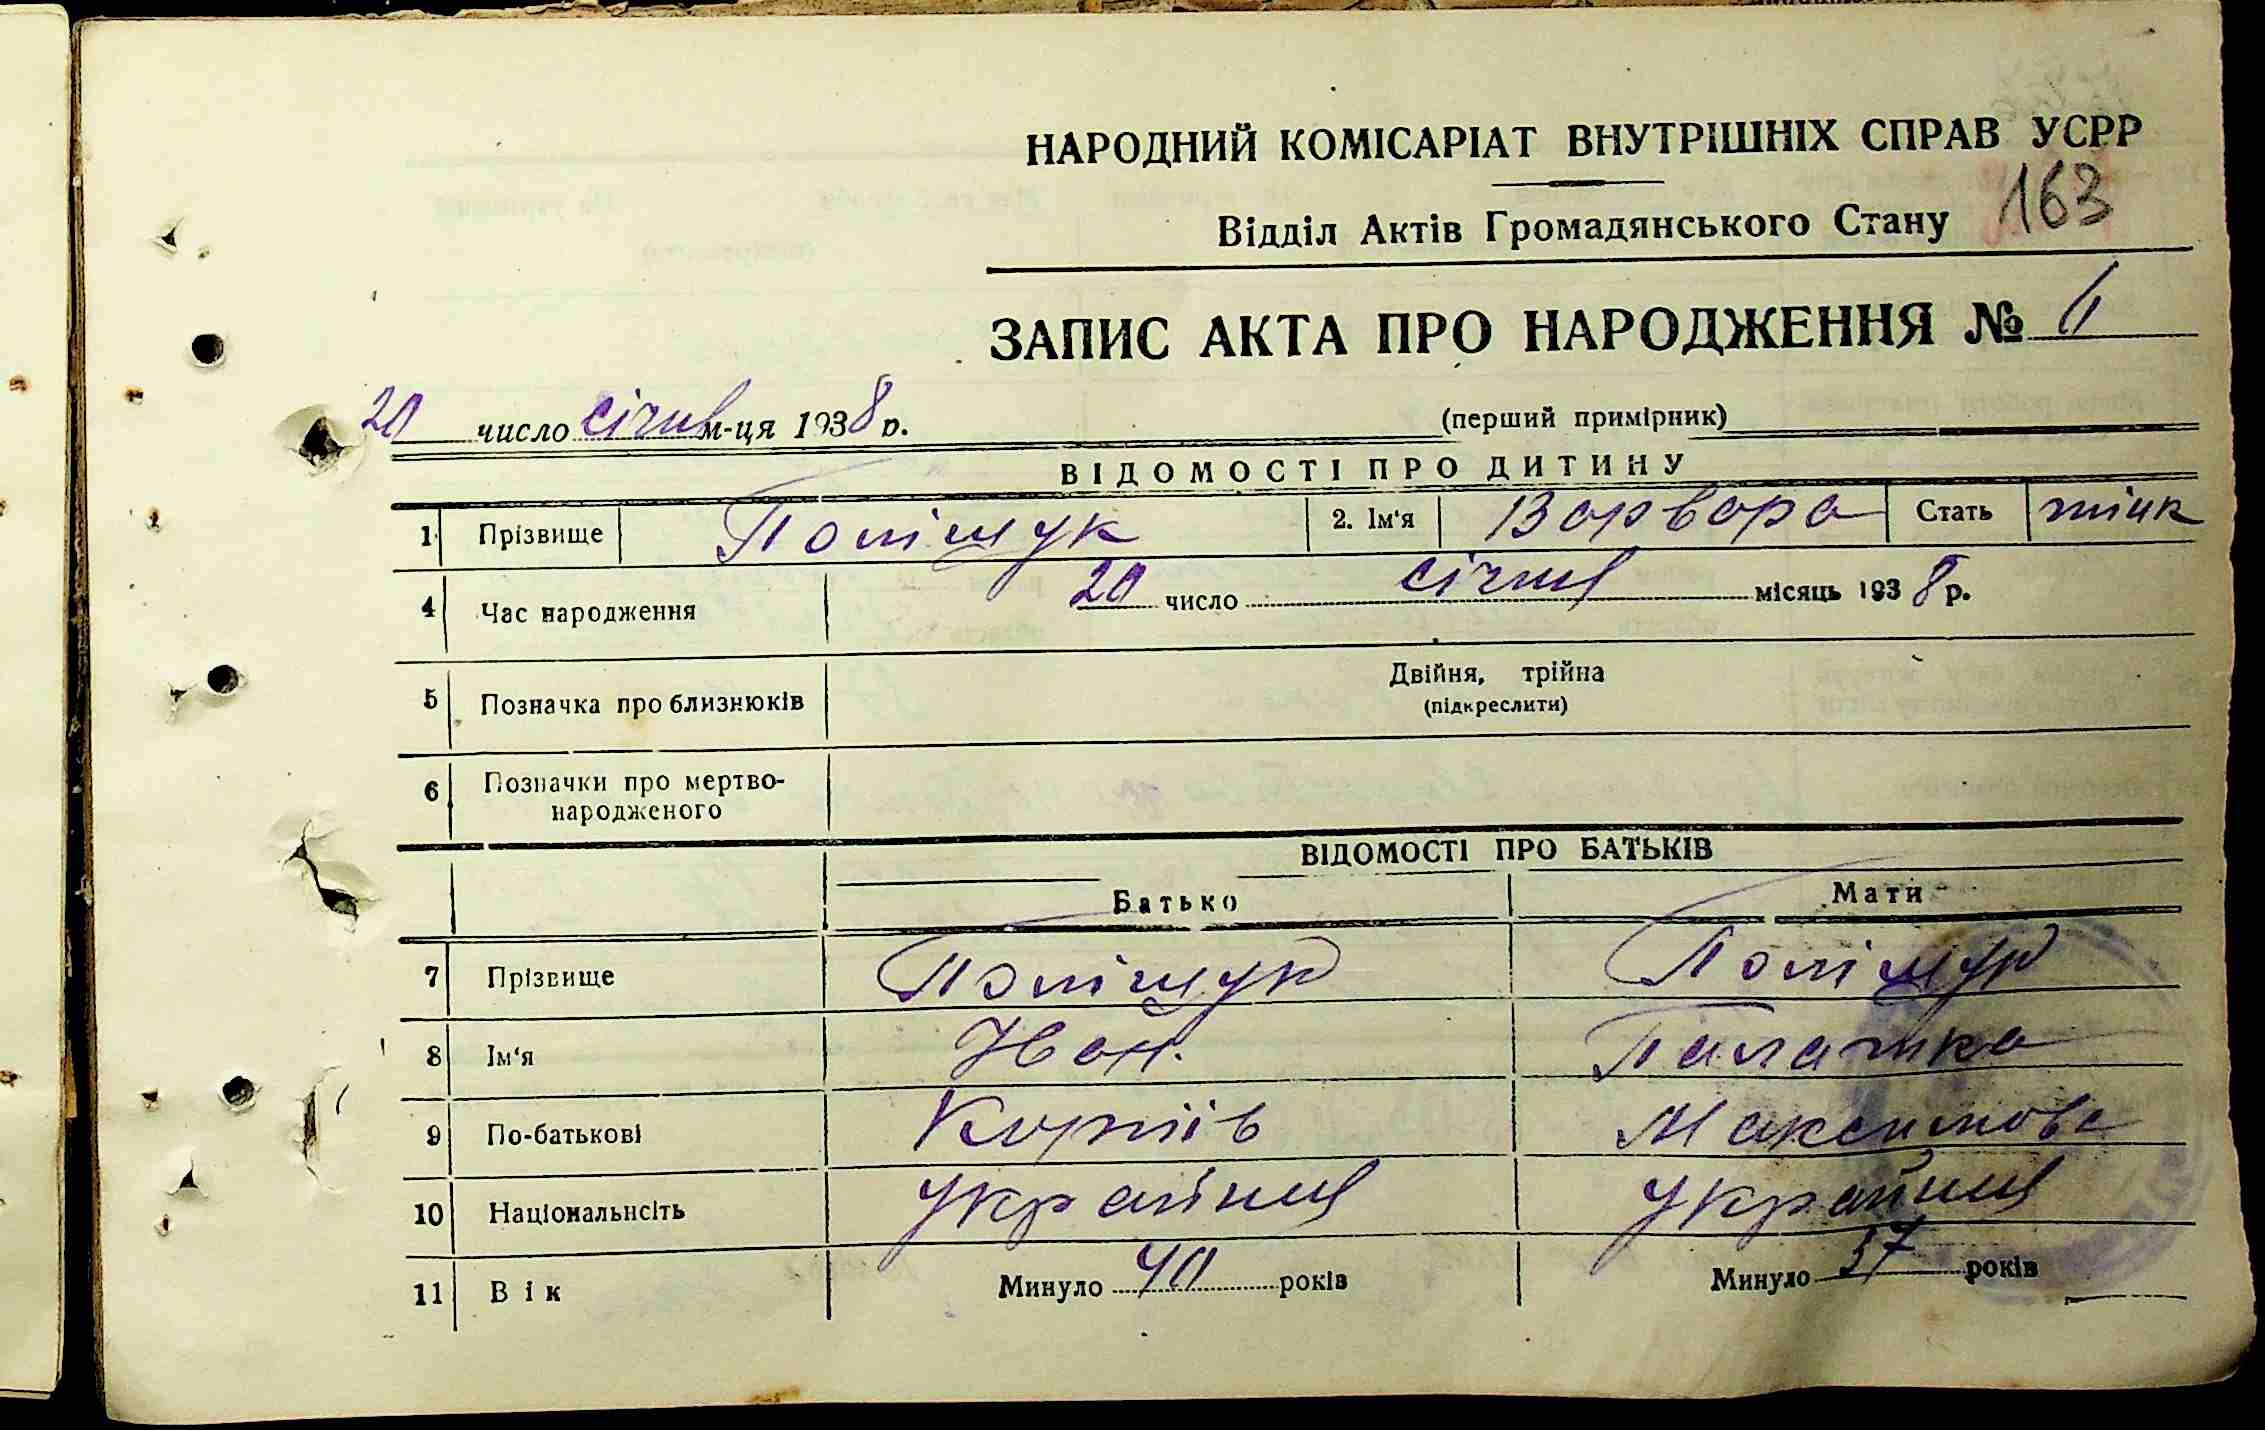 НАРОДНИЙ КОМІСАРІАТ ВНУТРІШНІХ СПРАВ УСРР
163
Відділ Актів Громадянського Стану
ЗАПИС АКТА ПРО НАРОДЖЕННЯ № 11
20 число січня м-ця 1938 р. (перший примірник)
ВІДОМОСТІ ПРО ДИТИНУ
1 Прізвище Поліщук 2. Ім'я Варвара Стать жінк
4 Час народження 20 число січня місяць 1938 р.
5 Позначка про близнюків Двійня, трійна
(підкреслити)
6 Позначки про мертво-
народженого
ВІДОМОСТІ ПРО БАТЬКІВ
Батько Мати
7 Прізвище Поліщук Поліщук
8 Ім'я Іван. Палажка
9 По-батькові Корніїв Максимова
10 Національнсіть Україниц Україниц
11 Вік Минуло 40 років Минуло 37 років